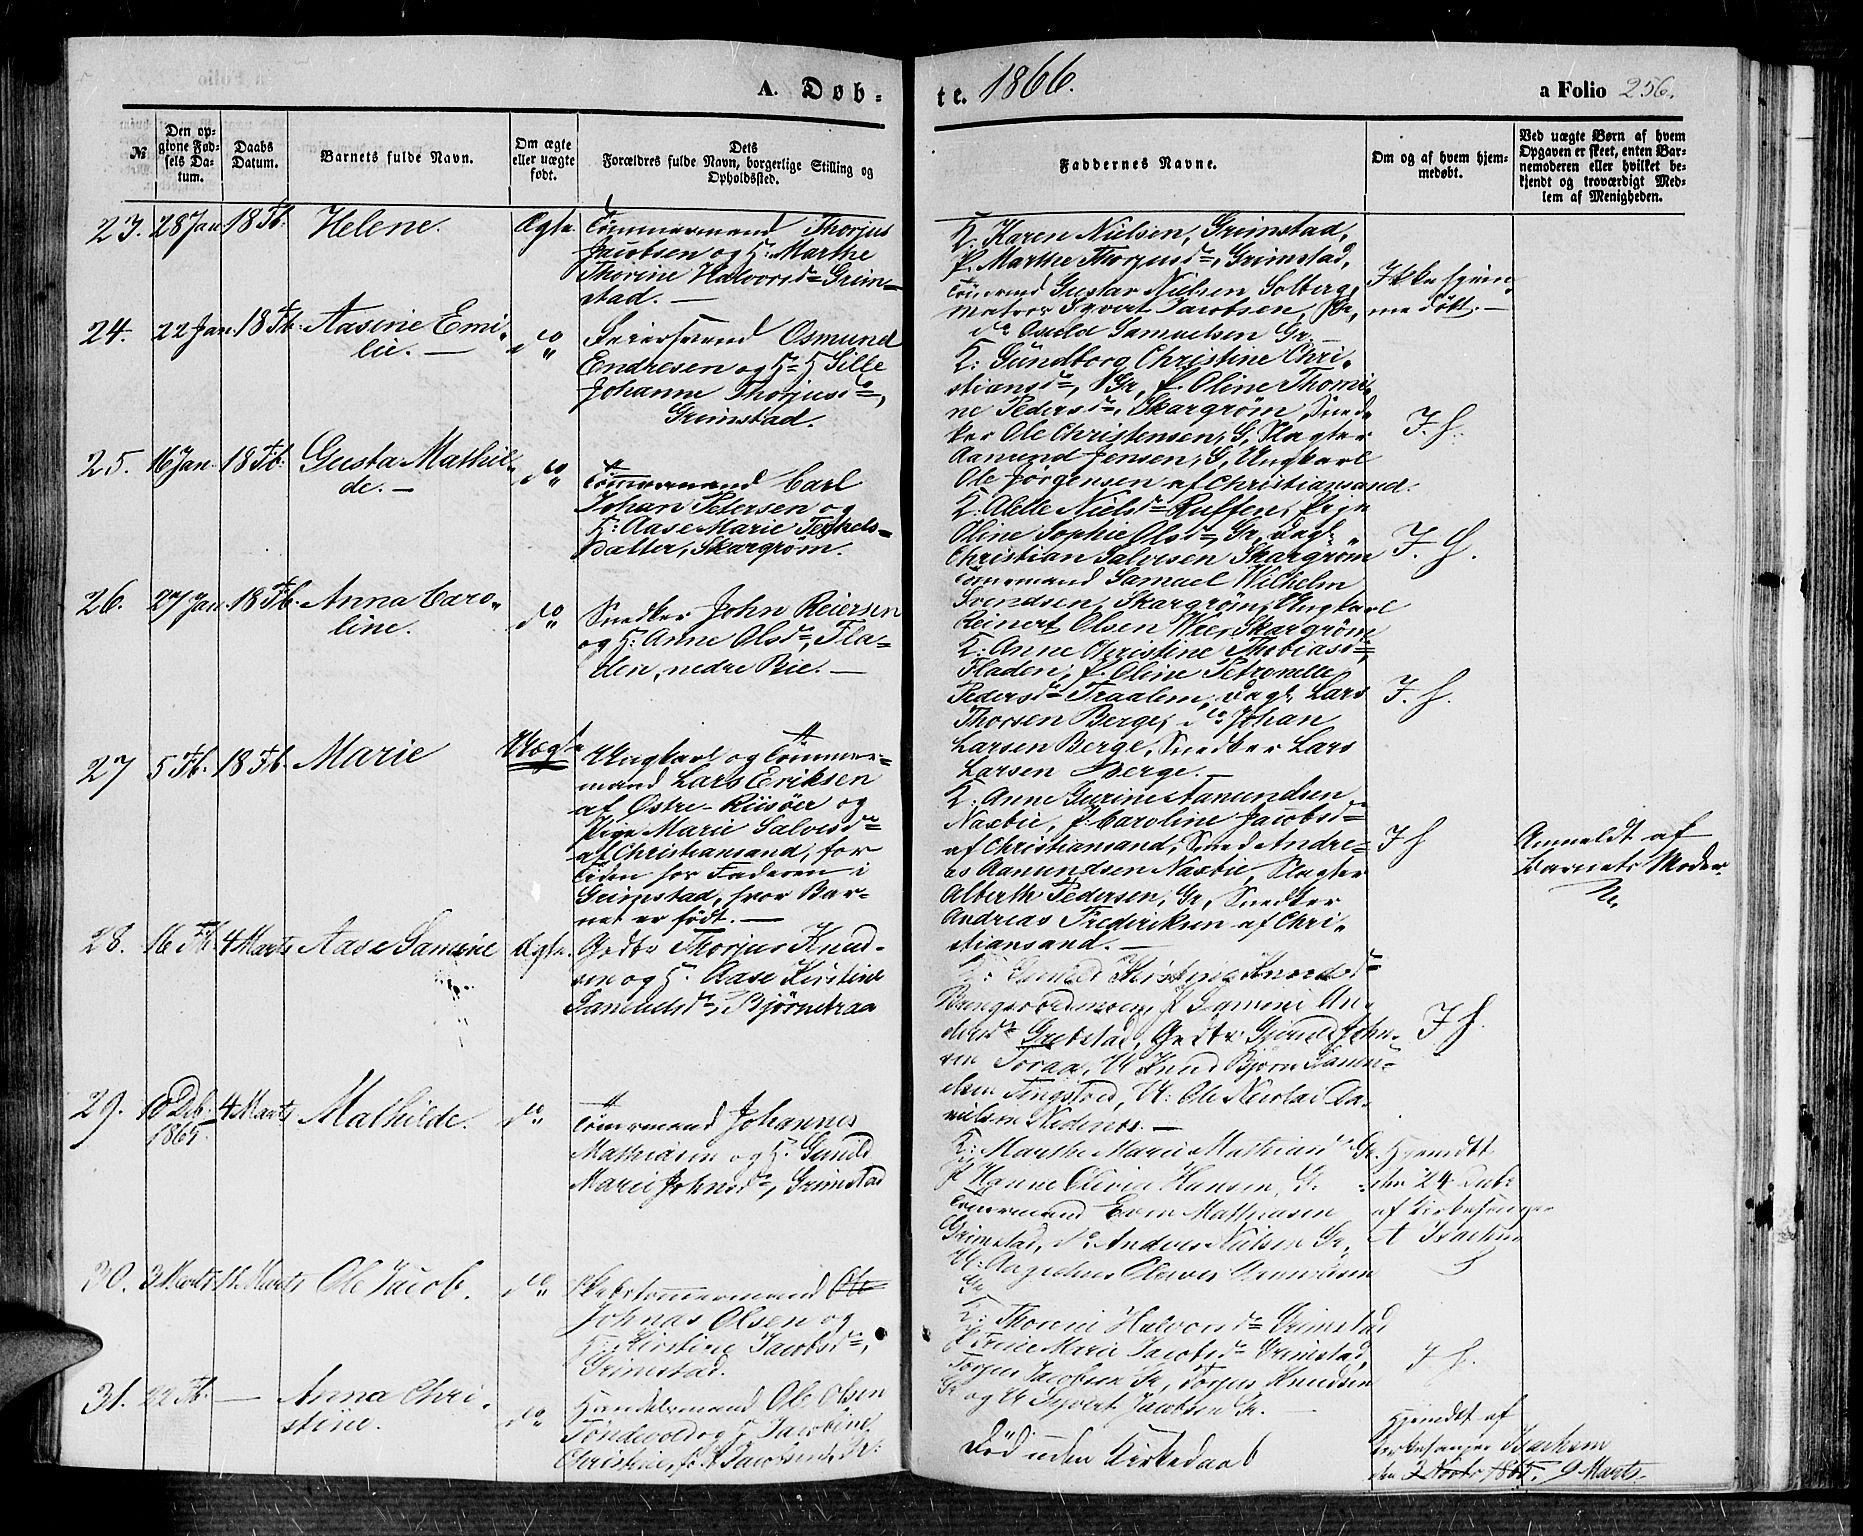 A. Døb-
te. 1866.
a Folio 256.
№
Den op-
givne Fød-
sels Da-
tum.
Daabs
Datum.
Barnets fulde Navn.
Om ægte
eller uægte
født.
Dets
Forældres fulde Navn, borgerlige Stilling og
Opholdssted.
Faddernes Navne.
Om og af hvem hjem-
medøbt.
Ved uægte Børn af hvem
Opgaven er skeet, enten Bar-
nemoderen eller hvilket be-
kjendt og troværdigt Med-
lem af Menigheden.
23. 28 Jan 18 Fb. Helene. Ægte
Tømmermand Thorjus
Jacobsen og H: Marthe
Thorine Halvorsdr Grim-
stad. —
K. Karen Nielsen, Grimstad,
P. Marthe Thorjusdr, Grimstad,
Tømrmd Gustav Nielsen Solberg,
Matros Syvert Jacobsen, Gr.,
do Osuld Samuelsen Gr.
Ikke hjem-
medøbt. —
24. 22 Jan. 18 Fb. Aasine Emi-
lie. — do
Feiersvend Osmund
Endresen og H Sille
Johanne Thorjusdr,
Grimstad.
K: Gundborg Christine Chri-
stiansdr, Gr, P. Oline Thomi-
ne Pedersdr, Skargrøm, Sned-
ker Ole Christensen, G, Slagter
Aamund Jensen, G, Ungkarl
Ole Jørgensen af Christiansand.
I. H.
25. 16 Jan. 18 Fb: Gusta Mathil-
de. — do
Tømmermand Carl
Johan Petersen og
H: Aase Marie Terkels-
Datter, Skargrøm.
K: Alette Nielsdr Ruffen, Pige
Oline Sophie Olsdr Gr, Dagl.
Christian Salvesen Skargrøm
Tømrmand Samuel Wilhelm
Svendsen, Skargrøm, Ungkarl
Reinert Olsen Wee, Skargrøm
I. H.
26. 27 Jan. 18 Fb. Anna Caro-
line. do
Snedker John Reiersen
og H: Anne Olsdr, Fla-
den, nedre Bie. —
K: Anne Christine Thobiasdr
Fladen, P. Oline Petronelle
Pedersdr Traalem, Dagl. Lars
Thorsen Berge, do Johan
Larsen Berge, Snedker Lars
Larsen Berge. —
I. H.
27 5 Fb. 18 Fb. Marie Uægte
Ungkarl og Tømmer-
mand Lars Eriksen
af Østre-Riisöer og
Pige Marie Salvesdr
af Christiansand, for
Tiden hos Faderen i
Grimstad, hvor Bar-
net er født. —
K. Anne Gurine Aamundsen
Naxbie, P. Caroline Jacobsdr
af Christiansand, Sned. Andre-
as Aamundsen Naxbie, Slagter
Alberth Pedersen, Gr, Snedker
Andreas Frederiksen af Chri-
stiansand. —
I H
Anmeldt af
Barnets Moder
28. 16 Fb. 4 Marts Aase Samine Ægte.
Gedbr Thorjus Knud-
sen og H. Aase Kirstine
Samuelsdr, Bjørnetraa
An-
dersdr Grebstad,
sen Toraa, U Knud Bjørn Sam-
uelsen Tingstved, U: Ole Nicolai Da-
nielsen Nedenes. —
I H.
29. 18 Deb. 1865. 4 Marts Mathilde. do
Tømrmand Johannes
Mathiasen og H. Gunild
Marie Johnsdr, Grimstad
K: Marthe Marie Mathiasdr Gr.
P Hanne Olivie Hansen, Gr
Tømrmand Even Mathiasen
Grimstad, do Anders Nielsen Gr,
Gr
Hjemdbt
den 24 Debr
af Kirkesanger
30. 3 Marts 11. Marts Ole Jacob. do
Skibstømmermand Ole
Johnas Olsen og
H. Kirstine Jacobsdr,
Grimstad.
K: Thorine Halvorsdr Grimstad
P Trine Marie Jacobsdr Grimstad,
Torjus Jacobsen Gr, Torjus Knudsen
Gr og U Syvert Jacobsen Gr. —
I H.
31. 22 Fb. — Anna Chri-
stine. do
Handelsmand Ole Olsen
Tøndevold og H Jacobine
Christine, f. Jacobsen, Gr.
Død uden Kirkedaab
Hjemdbt af
Kirkesanger
den 9 Marts.